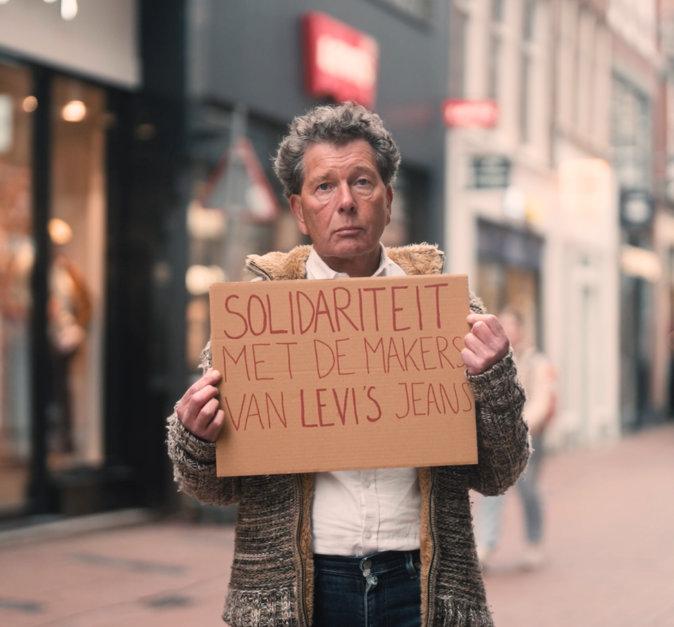 SOLIDARITEIT
MET DE MAKERS
VAN LEVI'S JEANS